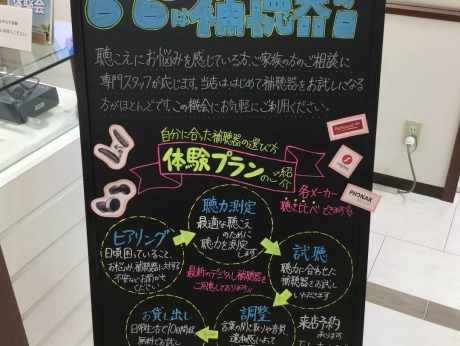 は補聴器の日
聴こえにお悩みを感じている方、ご家族の方のご相談に
専門スタッフが応じます。当店ははじめて補聴器をお試しになる
方がほとんどです。この機会にお気軽にご利用ください。
自分に合った補聴器の選び方
体験プランのご紹介
各メーカー
聴き比べできます
PHONAK
ヒアリング
日頃困っていること、
お悩み、補聴器に対する
聴力測定
最適な聴こえ
のために
聴力を測定
します
試聴
聴力に合わせた
補聴器をお試し
いただけます
最新のデジタル補聴器を
ご用意しております!!
お貸し出し
日常生活で10日間程
無料でお試し
調整
言葉の聞き取りや音質
違和感によって
来店予約
承ります